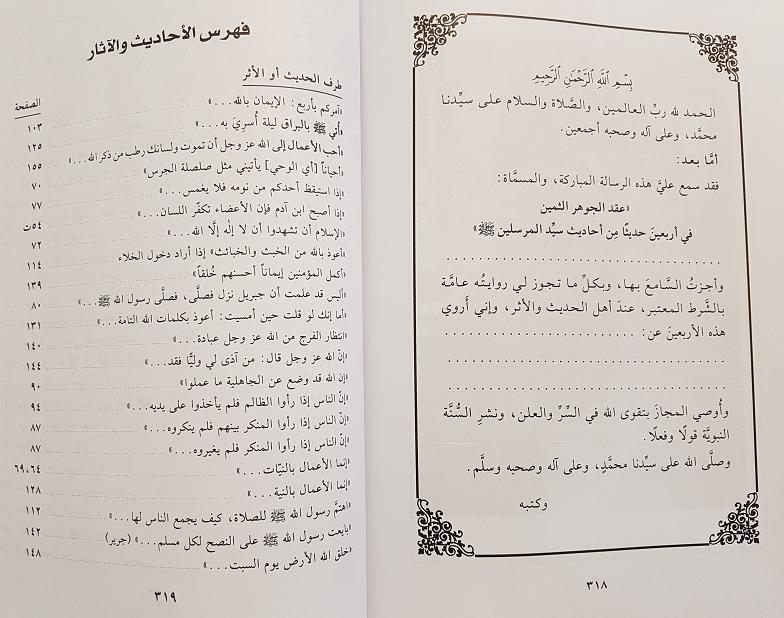 بِسْمِ اللَّهِ الرَّحْمَٰنِ الرَّحِيمِ
الحمد لله ربِّ العالمين، والصَّلاة والسلام على سيِّدنا
محمَّد، وعلى آله وصحبه أجمعين.
أمَّا بعد:
فقد سمع عليَّ هذه الرسالة المباركة، والمسمَّاة:
«عقد الجوهر الثمين
في أربعينَ حديثًا مِن أحاديثِ سيِّد المرسلين ﷺ»
. . . . . . . . . . . . . . . . . . . . . . . . . . . . . . . . .
وأجزتُ السَّامعَ بها، وبكلِّ ما تجوز لي روايتُه عامَّة
بالشَّرط المعتبر، عندَ أهل الحديث والأثر، وإني أَروي
هذه الأربعينَ عن: . . . . . . . . . . . . . . . . . . . . . . .
. . . . . . . . . . . . . . . . . . . . . . . . . . . . . . . . .
. . . . . . . . . . . . . . . . . . . . . . . . . . . . . . . . .
وأُوصي المجازَ بتقوى الله في السِّرِّ والعلن، ونشرِ السُّنَّة
النبويَّة قولًا وفعلًا.
وصلَّى الله على سيِّدنا محمَّدٍ، وعلى آله وصحبه وسلَّم.
وكتبه
٣١٨
فهرس الأحاديث والآثار
طرف الحديث أو الأثر الصفحة
«آمركم بأربع: الإيمان بالله...» ١٠٣
«أُتي ﷺ بالبراق ليلة أُسريَ به...» ١٢٥
«أحب الأعمال إلى الله عز وجل أن تموت ولسانك رطب من ذكر الله...» ١٥٥
«أحياناً [أي الوحي] يأتيني مثل صلصلة الجرس» ٧٠
«إذا استيقظ أحدكم من نومه فلا يغمس...» ٧٧
«إذا أصبح ابن آدم فإن الأعضاء تكفّر اللسان...» ٥٤ت
«الإسلام أن تشهدوا أن لا إلٰه إلَّا الله...» ٧٢
«أعوذ بالله من الخبث والخبائث» إذا أراد دخول الخلاء ١١٤
«أكمل المؤمنين إيماناً أحسنهم خُلقاً» ١٣٩
«أليس قد علمت أن جبريل نزل فصلَّى، فصلَّى رسول الله ﷺ...» ٨٠
«أما إنك لو قلت حين أمسيت: أعوذ بكلمات الله التامة...» ١٣١
«انتظار الفرج من الله عز وجل عبادة...» ١٤٠
«إنّ الله عز وجل قال: من آذى لي وليًّا فقد...» ١٤٤
«إن الله قد وضع عن الجاهلية ما عملوا» ٩٠
«إنّ الناس إذا رأوا الظالم فلم يأخذوا على يديه...» ٩٤
«إنّ الناس إذا رأوا المنكر بينهم فلم ينكروه...» ٨٧
«إنّ الناس إذا رأوا المنكر فلم يغيروه...» ٨٧
«إنما الأعمال بالنيّات...» ٦٩،٦٤
«إنما الأعمال بالنية...» ١٢٨
«اهتمَّ رسول الله ﷺ للصلاة، كيف يجمع الناس لها...» ١١٢
«بايعت رسول الله ﷺ على النصح لكل مسلم...» (جرير) ١٤٢
«خلق الله الأرض يوم السبت...» ١٤٨
٣١٩